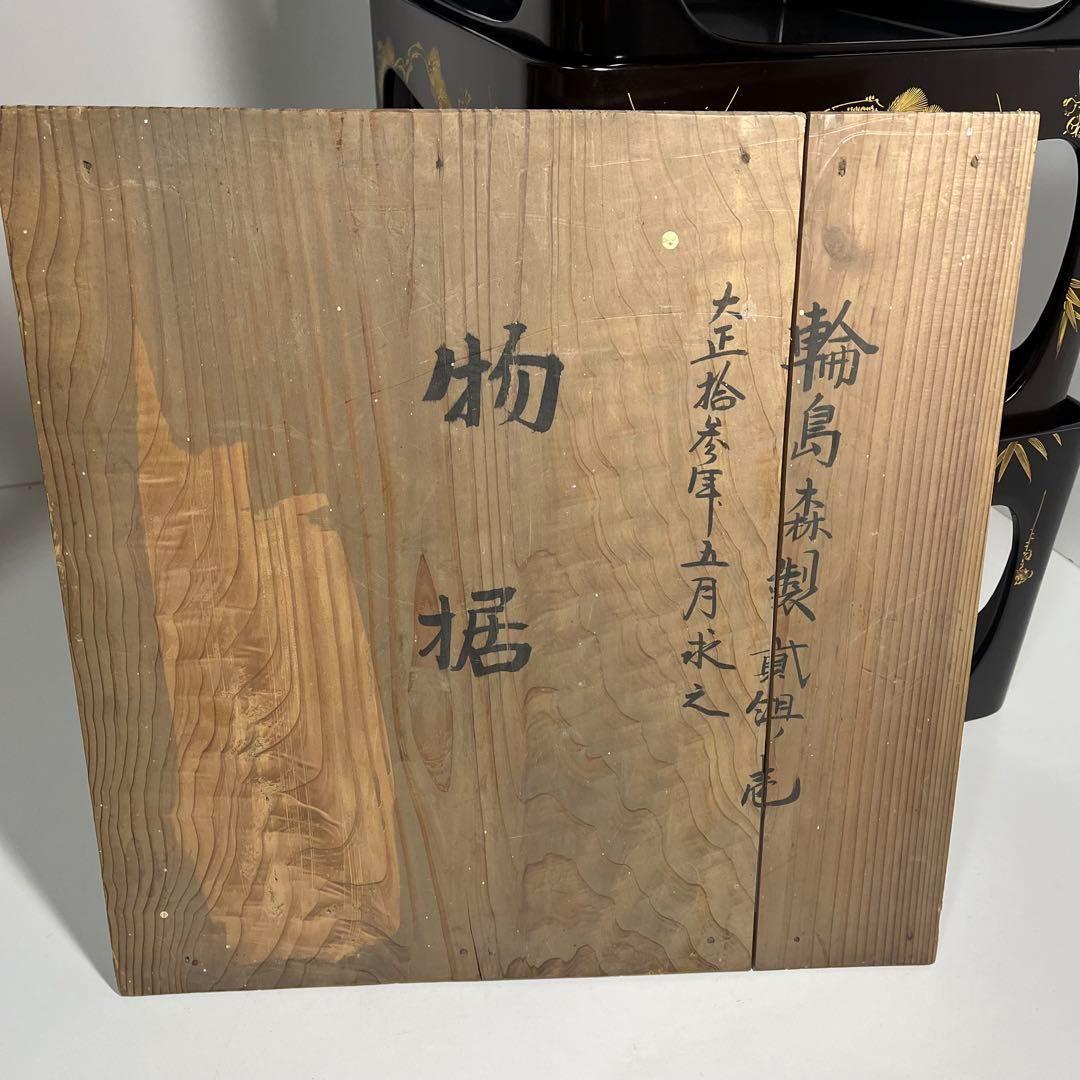 輪島森製 貳組ノ壱
大正拾参年五月求之
物据